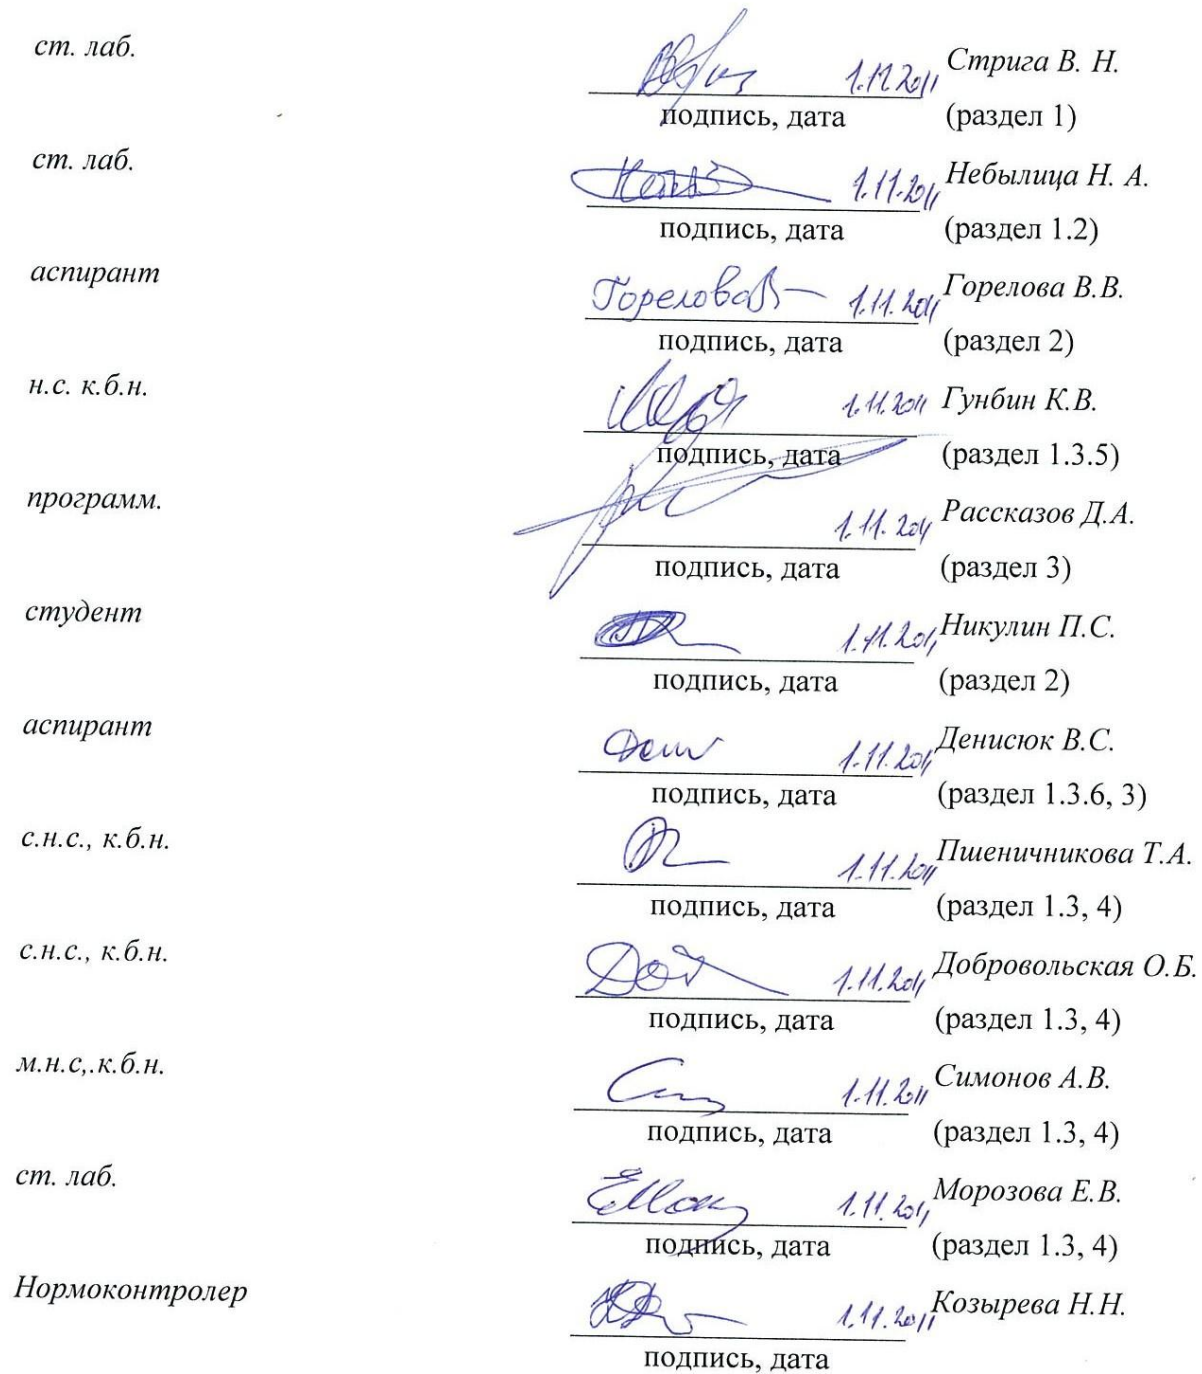 ст. лаб.
1.11.2011 Стрига В. Н.
подпись, дата (раздел 1)
ст. лаб.
1.11.2011 Небылица Н. А.
подпись, дата (раздел 1.2)
аспирант
Горелова 1.11.2011 Горелова В.В.
подпись, дата (раздел 2)
н.с. к.б.н.
1.11.2011 Гунбин К.В.
подпись, дата (раздел 1.3.5)
программ.
1.11.2011 Рассказов Д.А.
подпись, дата (раздел 3)
студент
1.11.2011 Никулин П.С.
подпись, дата (раздел 2)
аспирант
1.11.2011 Денисюк В.С.
подпись, дата (раздел 1.3.6, 3)
с.н.с., к.б.н.
1.11.2011 Пшеничникова Т.А.
подпись, дата (раздел 1.3, 4)
с.н.с., к.б.н.
1.11.2011 Добровольская О.Б.
подпись, дата (раздел 1.3, 4)
м.н.с,.к.б.н.
1.11.2011 Симонов А.В.
подпись, дата (раздел 1.3, 4)
ст. лаб.
1.11.2011 Морозова Е.В.
подпись, дата (раздел 1.3, 4)
Нормоконтролер
1.11.2011 Козырева Н.Н.
подпись, дата